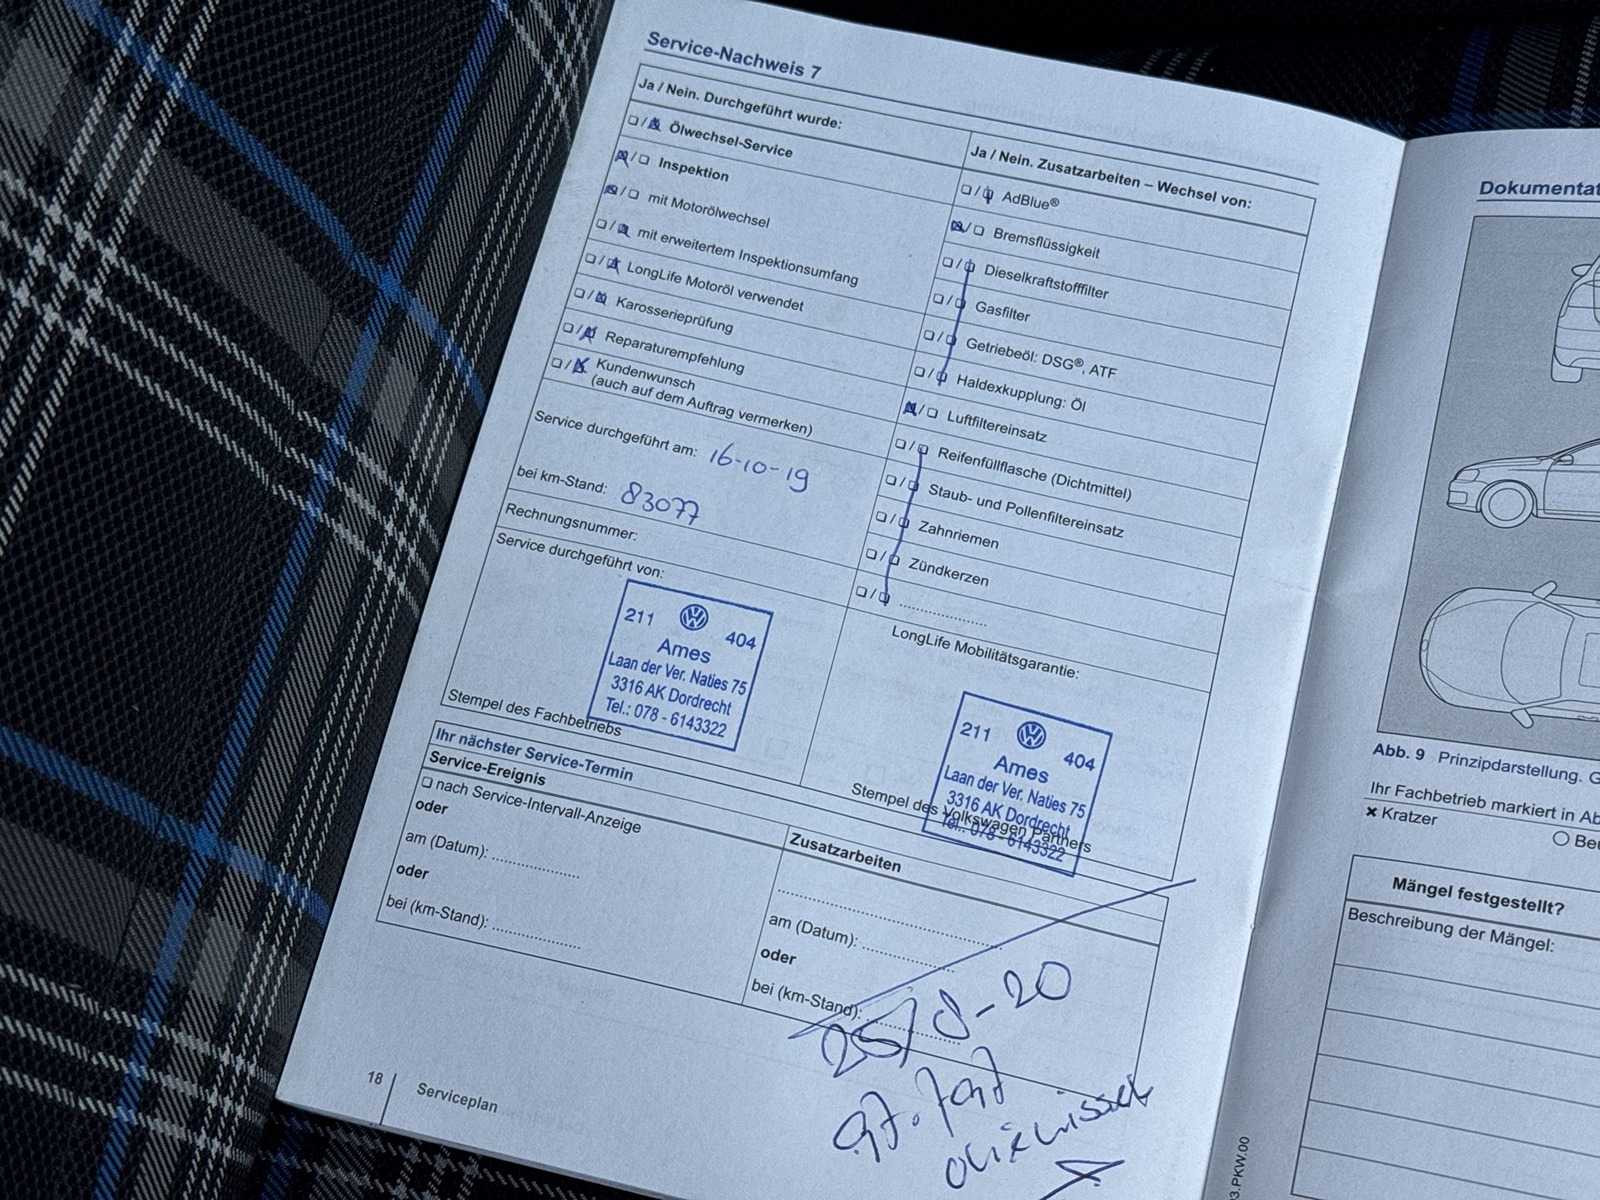 Service-Nachweis 7
Ja / Nein. Durchgeführt wurde:
Ölwechsel-Service
Inspektion
mit Motorölwechsel
mit erweitertem Inspektionsumfang
LongLife Motoröl verwendet
Karosserieprüfung
Reparaturempfehlung
Kundenwunsch
(auch auf dem Auftrag vermerken)
Service durchgeführt am: 16-10-19
bei km-Stand: 83077
Rechnungsnummer:
Service durchgeführt von:
211 404
Ames
Laan der Ver. Naties 75
3316 AK Dordrecht
Tel.: 078 - 6143322
Stempel des Fachbetriebs
Ja / Nein. Zusatzarbeiten – Wechsel von:
AdBlue®
Bremsflüssigkeit
Dieselkraftstofffilter
Gasfilter
Getriebeöl: DSG®, ATF
Haldexkupplung: Öl
Luftfiltereinsatz
Reifenfüllflasche (Dichtmittel)
Staub- und Pollenfiltereinsatz
Zahnriemen
Zündkerzen
LongLife Mobilitätsgarantie:
211 404
Ames
Laan der Ver. Naties 75
3316 AK Dordrecht
Tel.: 078 - 6143322
Stempel des Volkswagen Partners
Ihr nächster Service-Termin
Service-Ereignis
nach Service-Intervall-Anzeige
oder
am (Datum):
oder
bei (km-Stand):
Zusatzarbeiten
am (Datum):
oder
bei (km-Stand):
25/8-20
18
Serviceplan
Abb. 9 Prinzipdarstellung. G
Ihr Fachbetrieb markiert in Ab
Kratzer
Mängel festgestellt?
Beschreibung der Mängel:
3.PKW.00